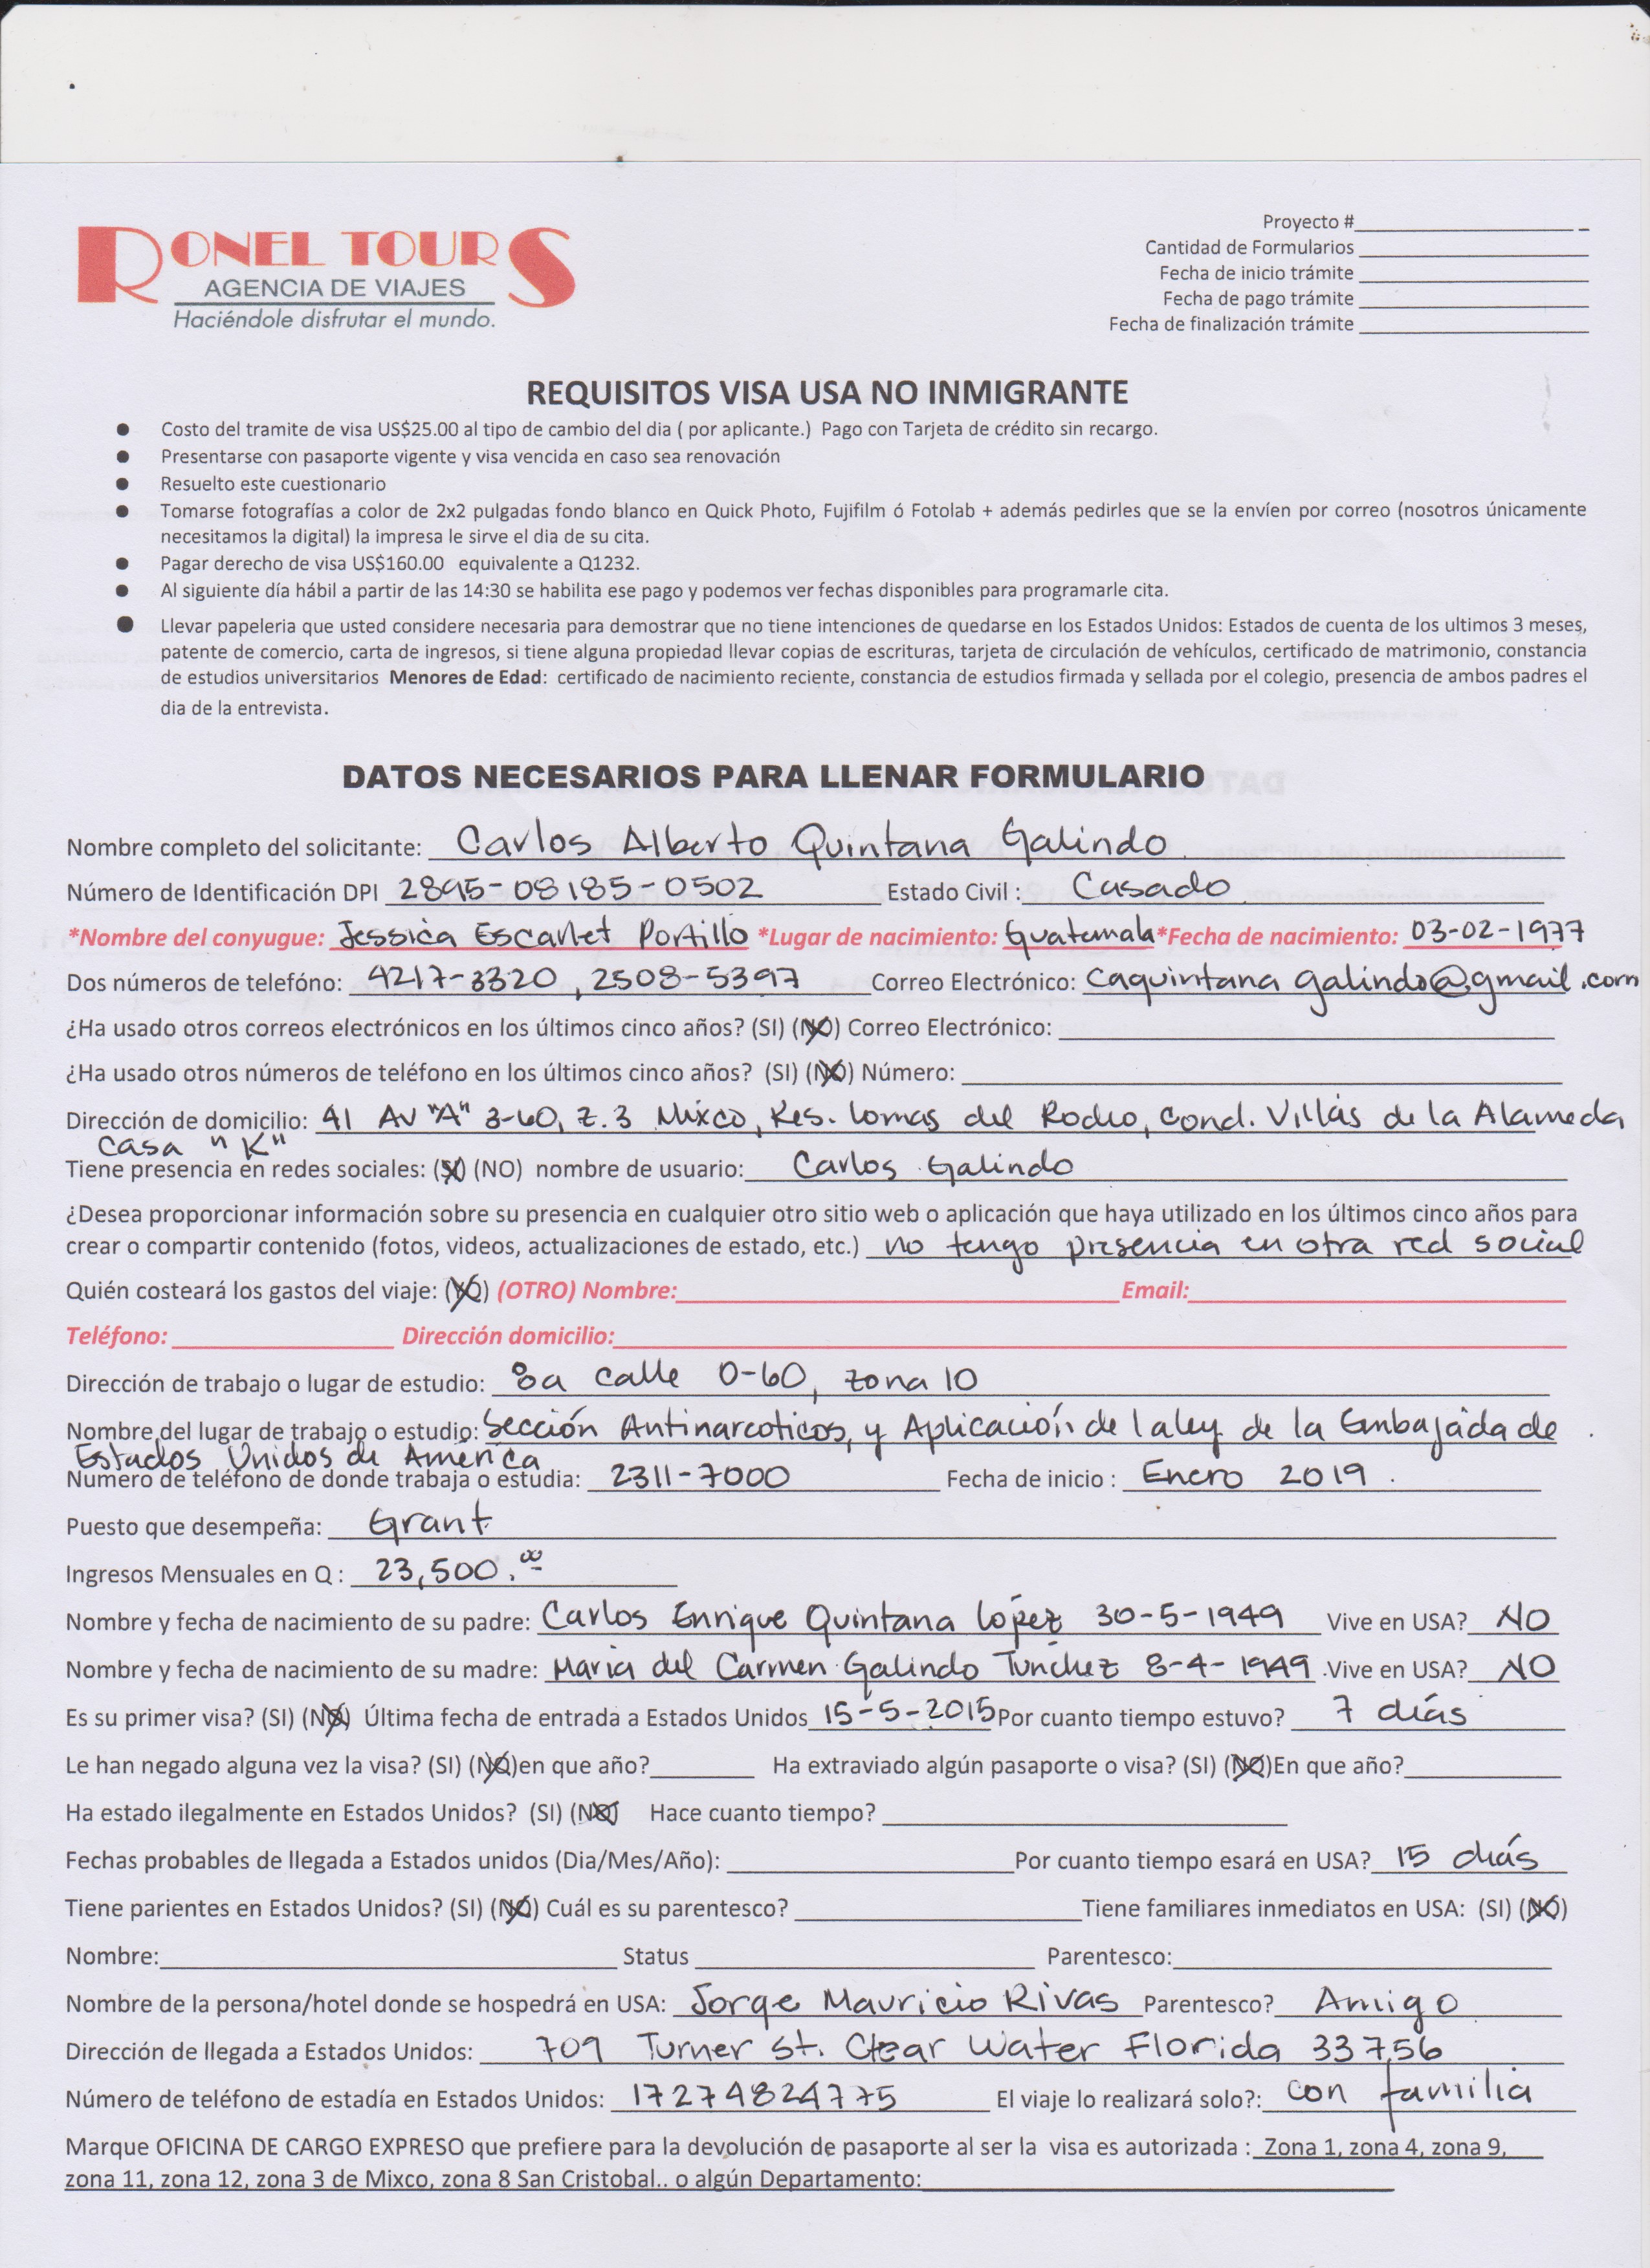 RONEL TOURS
AGENCIA DE VIAJES
Haciéndole disfrutar el mundo.
Proyecto #
Cantidad de Formularios
Fecha de inicio trámite
Fecha de pago trámite
Fecha de finalización trámite
REQUISITOS VISA USA NO INMIGRANTE
● Costo del tramite de visa US$25.00 al tipo de cambio del dia ( por aplicante.) Pago con Tarjeta de crédito sin recargo.
● Presentarse con pasaporte vigente y visa vencida en caso sea renovación
● Resuelto este cuestionario
● Tomarse fotografías a color de 2x2 pulgadas fondo blanco en Quick Photo, Fujifilm ó Fotolab + además pedirles que se la envíen por correo (nosotros únicamente
necesitamos la digital) la impresa le sirve el dia de su cita.
● Pagar derecho de visa US$160.00 equivalente a Q1232.
● Al siguiente día hábil a partir de las 14:30 se habilita ese pago y podemos ver fechas disponibles para programarle cita.
● Llevar papeleria que usted considere necesaria para demostrar que no tiene intenciones de quedarse en los Estados Unidos: Estados de cuenta de los ultimos 3 meses,
patente de comercio, carta de ingresos, si tiene alguna propiedad llevar copias de escrituras, tarjeta de circulación de vehículos, certificado de matrimonio, constancia
de estudios universitarios Menores de Edad: certificado de nacimiento reciente, constancia de estudios firmada y sellada por el colegio, presencia de ambos padres el
dia de la entrevista.
DATOS NECESARIOS PARA LLENAR FORMULARIO
Nombre completo del solicitante: Carlos Alberto Quintana Galindo.
Número de Identificación DPI 2895-08185-0502 Estado Civil : Casado
*Nombre del conyugue: Jessica Escarlet Portillo *Lugar de nacimiento: Guatemala *Fecha de nacimiento: 03-02-1977
Dos números de telefóno: 4217-3320, 2508-5397 Correo Electrónico: caquintanagalindo@gmail.com
¿Ha usado otros correos electrónicos en los últimos cinco años? (SI) (NO) Correo Electrónico:
¿Ha usado otros números de teléfono en los últimos cinco años? (SI) (NO) Número:
Dirección de domicilio: 41 AV "A" 3-60, z.3 Mixco, Res. lomas del Rodeo, Cond. Villas de la Alameda
casa "K"
Tiene presencia en redes sociales: (SI) (NO) nombre de usuario: Carlos Galindo
¿Desea proporcionar información sobre su presencia en cualquier otro sitio web o aplicación que haya utilizado en los últimos cinco años para
crear o compartir contenido (fotos, videos, actualizaciones de estado, etc.) no tengo presencia en otra red social
Quién costeará los gastos del viaje: (YO) (OTRO) Nombre: Email:
Teléfono: Dirección domicilio:
Dirección de trabajo o lugar de estudio: 8a calle 0-60, zona 10
Nombre del lugar de trabajo o estudio: Sección Antinarcoticos, y Aplicación de la ley de la Embajada de
Estados Unidos de América
Numero de teléfono de donde trabaja o estudia: 2311-7000 Fecha de inicio : Enero 2019.
Puesto que desempeña: Grant
Ingresos Mensuales en Q : 23,500.00
Nombre y fecha de nacimiento de su padre: Carlos Enrique Quintana López 30-5-1949 Vive en USA? NO
Nombre y fecha de nacimiento de su madre: Maria del Carmen Galindo Tunchez 8-4-1949 Vive en USA? NO
Es su primer visa? (SI) (NO) Última fecha de entrada a Estados Unidos 15-5-2015 Por cuanto tiempo estuvo? 7 días
Le han negado alguna vez la visa? (SI) (NO)en que año? Ha extraviado algún pasaporte o visa? (SI) (NO)En que año?
Ha estado ilegalmente en Estados Unidos? (SI) (NO) Hace cuanto tiempo?
Fechas probables de llegada a Estados unidos (Dia/Mes/Año): Por cuanto tiempo esará en USA? 15 días
Tiene parientes en Estados Unidos? (SI) (NO) Cuál es su parentesco? Tiene familiares inmediatos en USA: (SI) (NO)
Nombre: Status Parentesco:
Nombre de la persona/hotel donde se hospedrá en USA: Jorge Mauricio Rivas Parentesco? Amigo
Dirección de llegada a Estados Unidos: 709 Turner st. Clear Water Florida 33756
Número de teléfono de estadía en Estados Unidos: 17274824775 El viaje lo realizará solo?: con familia
Marque OFICINA DE CARGO EXPRESO que prefiere para la devolución de pasaporte al ser la visa es autorizada : Zona 1, zona 4, zona 9,
zona 11, zona 12, zona 3 de Mixco, zona 8 San Cristobal.. o algún Departamento: